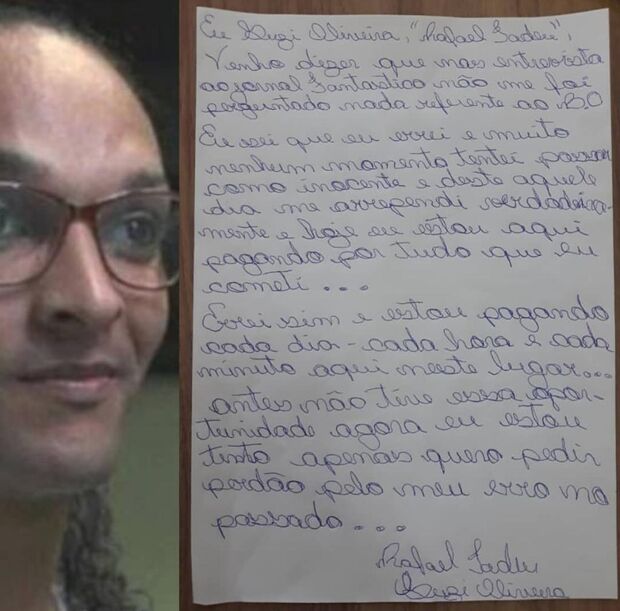 Eu Suzi Oliveira, "Rafael Tadeu",
Venho dizer que nas entrevista
ao jornal fantastico não me foi
perguntado nada referente ao BO
Eu sei que eu errei e muito
nenhum momento tentei passar
como inocente e deste aquele
dia me arrependi verdadeira-
mente e hoje eu estou aqui
pagando por tudo que eu
cometi . . .
Errei sim e estou pagando
cada dia - cada hora e cada
minuto aqui neste lugar...
antes não tive essa opor-
tunidade agora eu estou
tendo apenas quero pedir
perdão pelo meu erro no
passado . . .
Rafael Tadeu
Suzi Oliveira